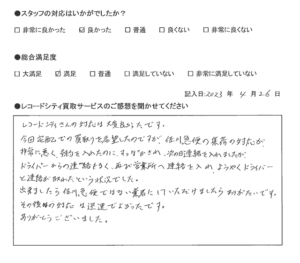 ●スタッフの対応はいかがでしたか?
□ 非常に良かった ☑ 良かった □ 普通 □ 良くない □ 非常に良くない
●総合満足度
□ 大満足 ☑ 満足 □ 普通 □ 満足していない □ 非常に満足していない
記入日:2023 年 4 月 26 日
●レコードシティ買取サービスのご感想を聞かせてください
レコードシティさんの対応は大変良かったです。
今回宅配での買取りを希望したのですが 佐川急便の集荷の対応が
非常に悪く、予約を入れたのに、すっぽかされ、次の日連絡を入れましたが
ドライバーからの連絡もなく、再び営業所へ連絡を入れ、ようやくドライバー
と連絡が取れたという状況でした。
出来ましたら佐川急便ではない業者にしていただけましたらありがたいです。
その後の対応は迅速でよかったです。
ありがとうございました。